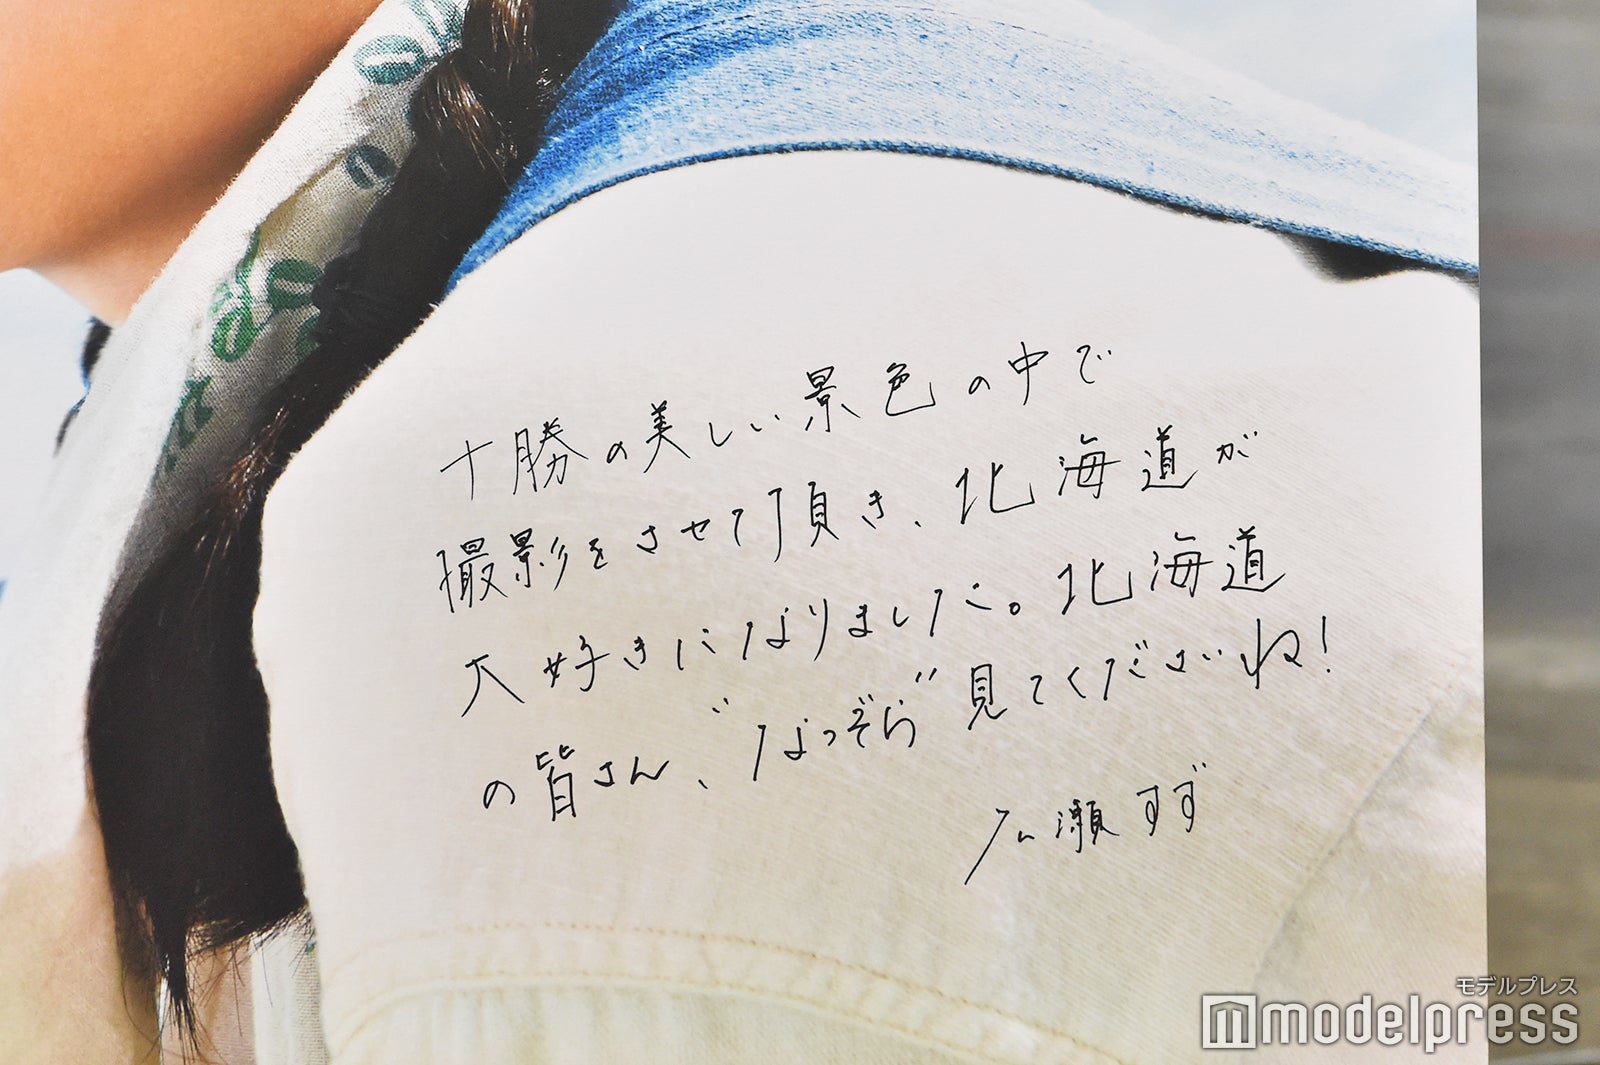 十勝の美しい景色の中で
撮影をさせて頂き、北海道が
大好きになりました。北海道
の皆さん、"なつぞら"見てくださいね!
広瀬すず
モデルプレス
modelpress